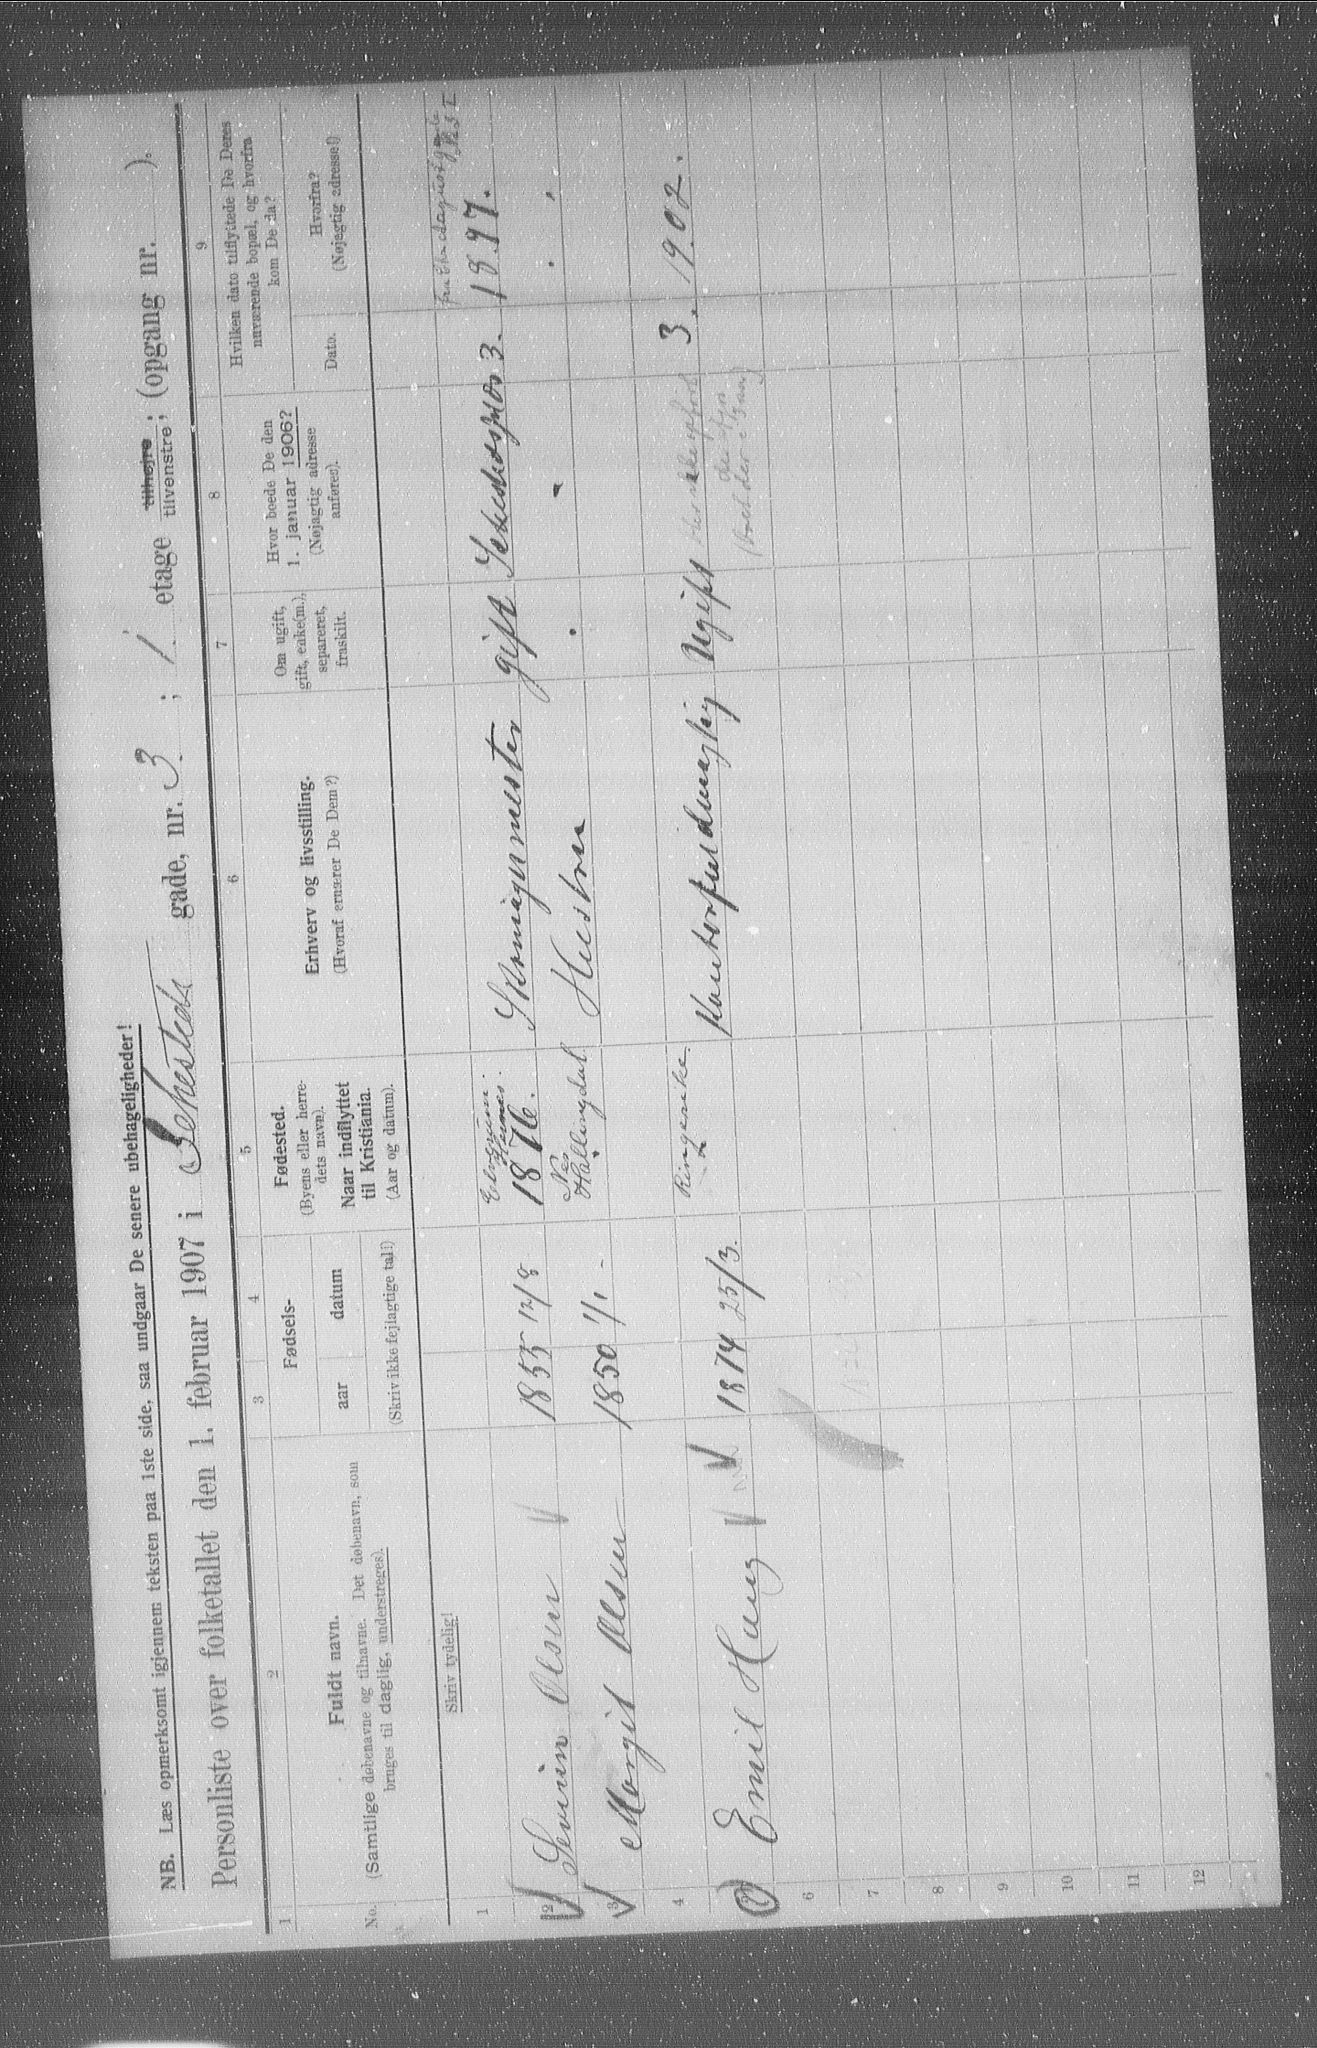 NB. Læs opmerksomt igjennem teksten paa 1ste side, saa undgaar De senere ubehageligheder!
Personliste over folketallet den 1. februar 1907 i Sehesteds gade, nr. 3 ; 1 etage tilhøjre ; tilvenstre ; (opgang nr. ).
1 2 3 4 5 6 7 8 9
No.
Fuldt navn.
(Samtlige døbenavne og tilnavne. Det døbenavn, som
bruges til daglig, understreges).
Fødsels-
aar datum
(Skriv ikke fejlagtige tal!)
Fødested.
(Byens eller herre-
dets navn).
Naar indflyttet
til Kristiania.
(Aar og datum).
Erhverv og livsstilling.
(Hvoraf ernærer De Dem?)
Om ugift,
gift, enke(m.),
separeret,
fraskilt.
Hvor boede De den
1. januar 1906?
(Nøjagtig adresse
anføres).
Hvilken dato tilflyttede De Deres
nuværende bopæl, og hvorfra
kom De da?
Dato.
Hvorfra?
(Nøjagtig adresse!)
Skriv tydelig!
1
2 Severin Olsen 1855 12/8 1876. gift 3. 1897.
3 Margit Olsen 1850 1/1 Nes Hallingdal Hustru
4
Emil Haug 1874 25/3. Ringerike. Ugift 3. 1902.
6
7
8
9
10
11
12